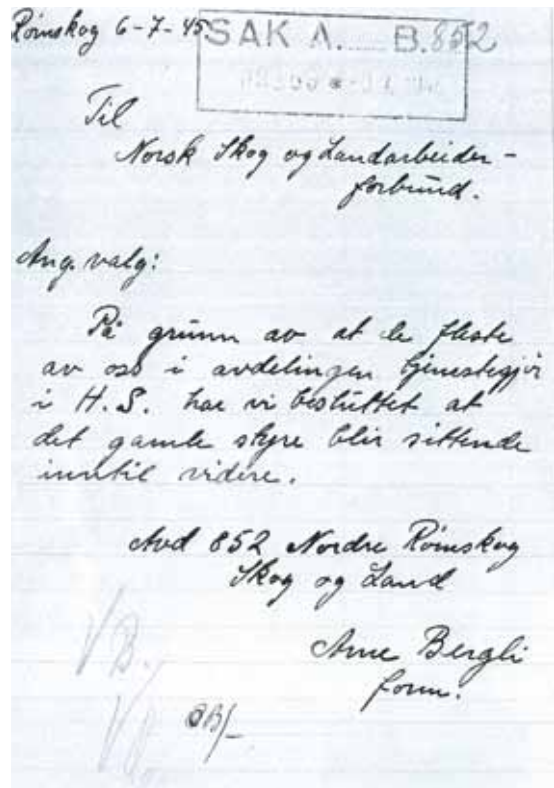 Rømskog 6-7-45
SAK A. B. 852
Til
Norsk Skog og Landarbeider-
forbund.
Ang. valg:
På grunn av at de fleste
av oss i avdelingen tjenestegjør
i H.S. har vi besluttet at
det gamle styre blir sittende
inntil videre.
Avd 852 Nordre Rømskog
Skog og Land
Arne Bergli
form.